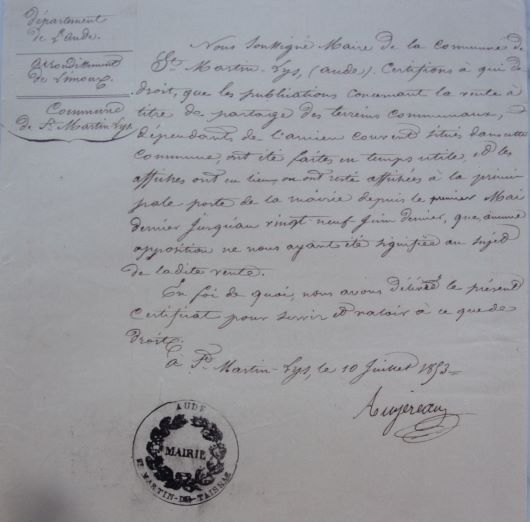 département
de l'aude.
arrondissement
de Limoux.
Commune
de St. Martin-Lys
Nous Soussigné Maire de la Commune de
St. Martin-Lys, (aude). Certifions à qui de
droit, que les publications concernant la vente à
titre de partage des terreins communaux,
dépendants de l'ancien couvent situés dans cette
Commune, ont été faites en temps utile, et les
affiches ont eu lieu ou ont resté affichées à la princi-
pale porte de la mairie depuis le premier Mai
dernier jusqu'au vingt neuf Juin dernier, que aucune
opposition ne nous ayant été signifiée au sujet
de ladite vente.
En foi de quoi, nous avons délivré le présent
Certificat pour servir et valoir à ce que de
droit.
à St. Martin-Lys, le 10 Juillet 1853
AUDE
MAIRIE
ST MARTIN-DE-TAISSAC